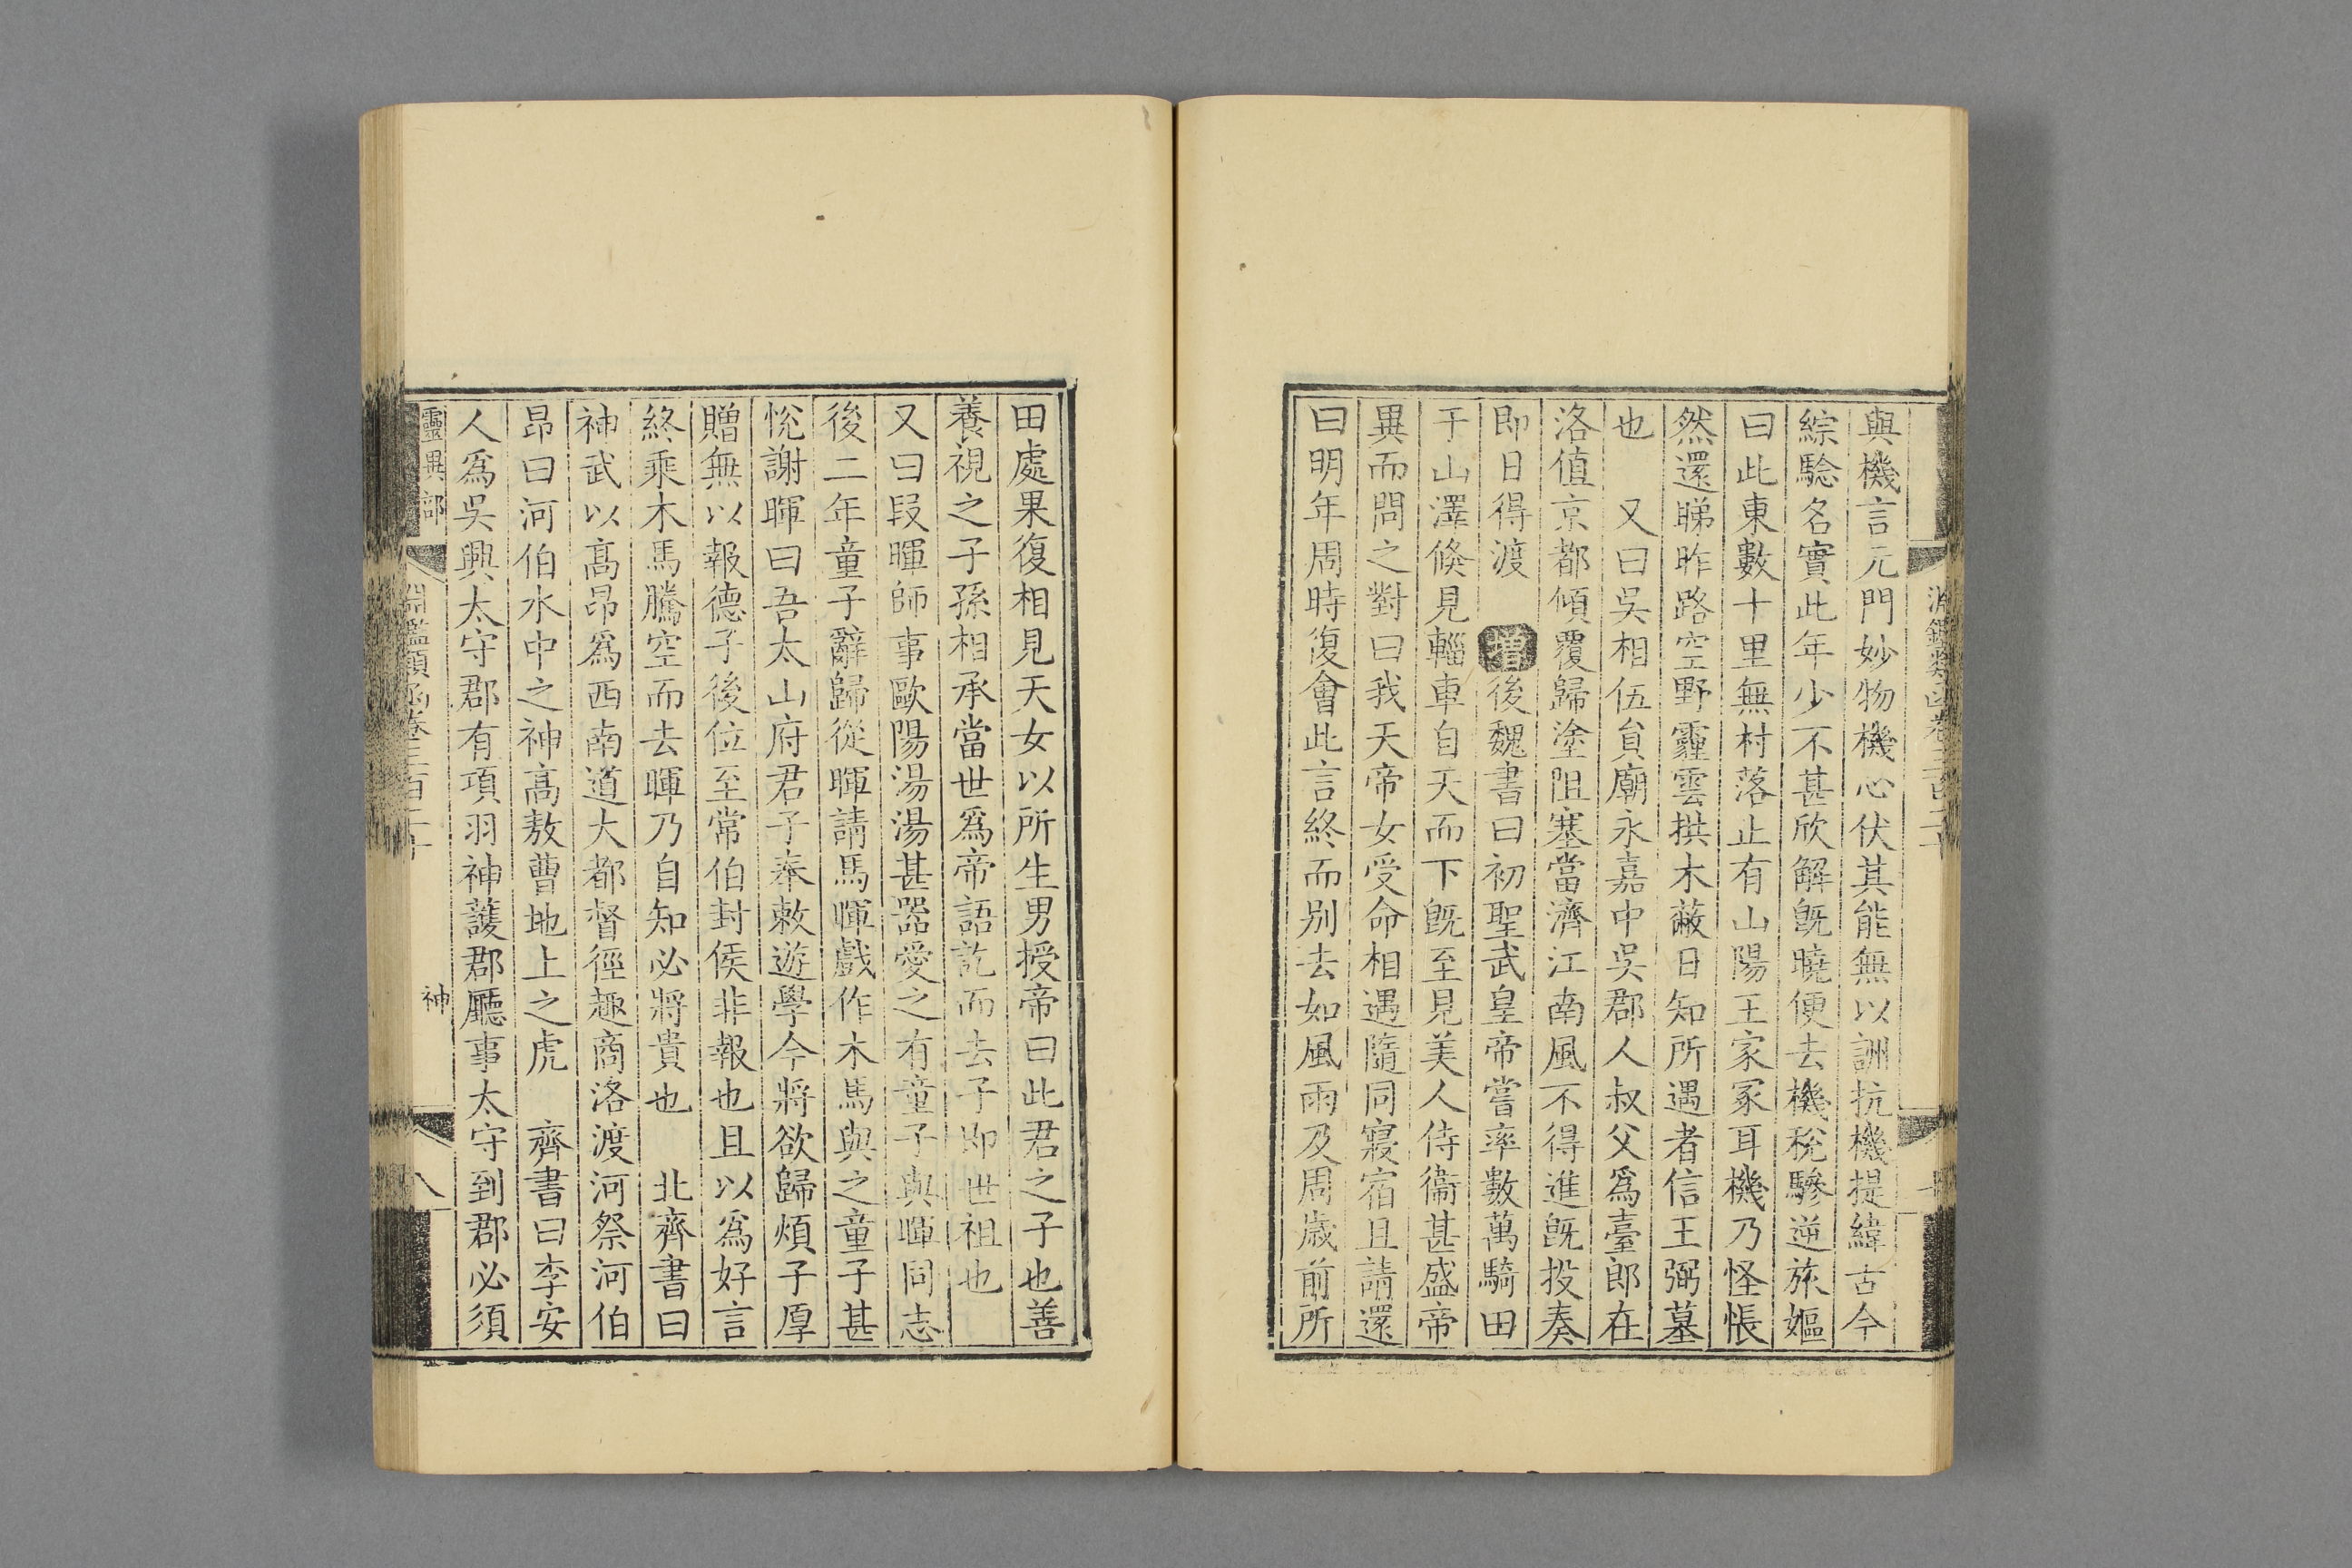 與機言元門妙物機心伏其能無以詶抗機提緯古今
綜騐名實此年少不甚欣解旣曉便去機稅驂逆旅嫗
曰此東數十里無村落止有山陽王家冢耳機乃怪悵
然還睇昨路空野霾雲拱木蔽日知所遇者信王弼墓
也　又曰吳相伍員廟永嘉中吳郡人叔父爲臺郎在
洛值京都傾覆歸塗阻塞當濟江南風不得進旣投奏
即日得渡　增後魏書曰初聖武皇帝嘗率數萬騎田
于山澤倏見輜車自天而下旣至見美人侍衞甚盛帝
異而問之對曰我天帝女受命相遇隨同寢宿且請還
曰明年周時復會此言終而別去如風雨及周歲前所
田處果復相見天女以所生男授帝曰此君之子也善
養視之子孫相承當世爲帝語訖而去子即世祖也
又曰段暉師事歐陽湯湯甚器愛之有童子與暉同志
後二年童子辭歸從暉請馬暉戲作木馬與之童子甚
悅謝暉曰吾太山府君子奉敕遊學今將欲歸煩子厚
贈無以報德子後位至常伯封侯非報也且以爲好言
終乘木馬騰空而去暉乃自知必將貴也　北齊書曰
神武以高昂爲西南道大都督徑趣商洛渡河祭河伯
昂曰河伯水中之神高敖曹地上之虎　齊書曰李安
人爲吳興太守郡有項羽神護郡廳事太守到郡必須
靈異部
淵鑑類函卷三百二十
神
八